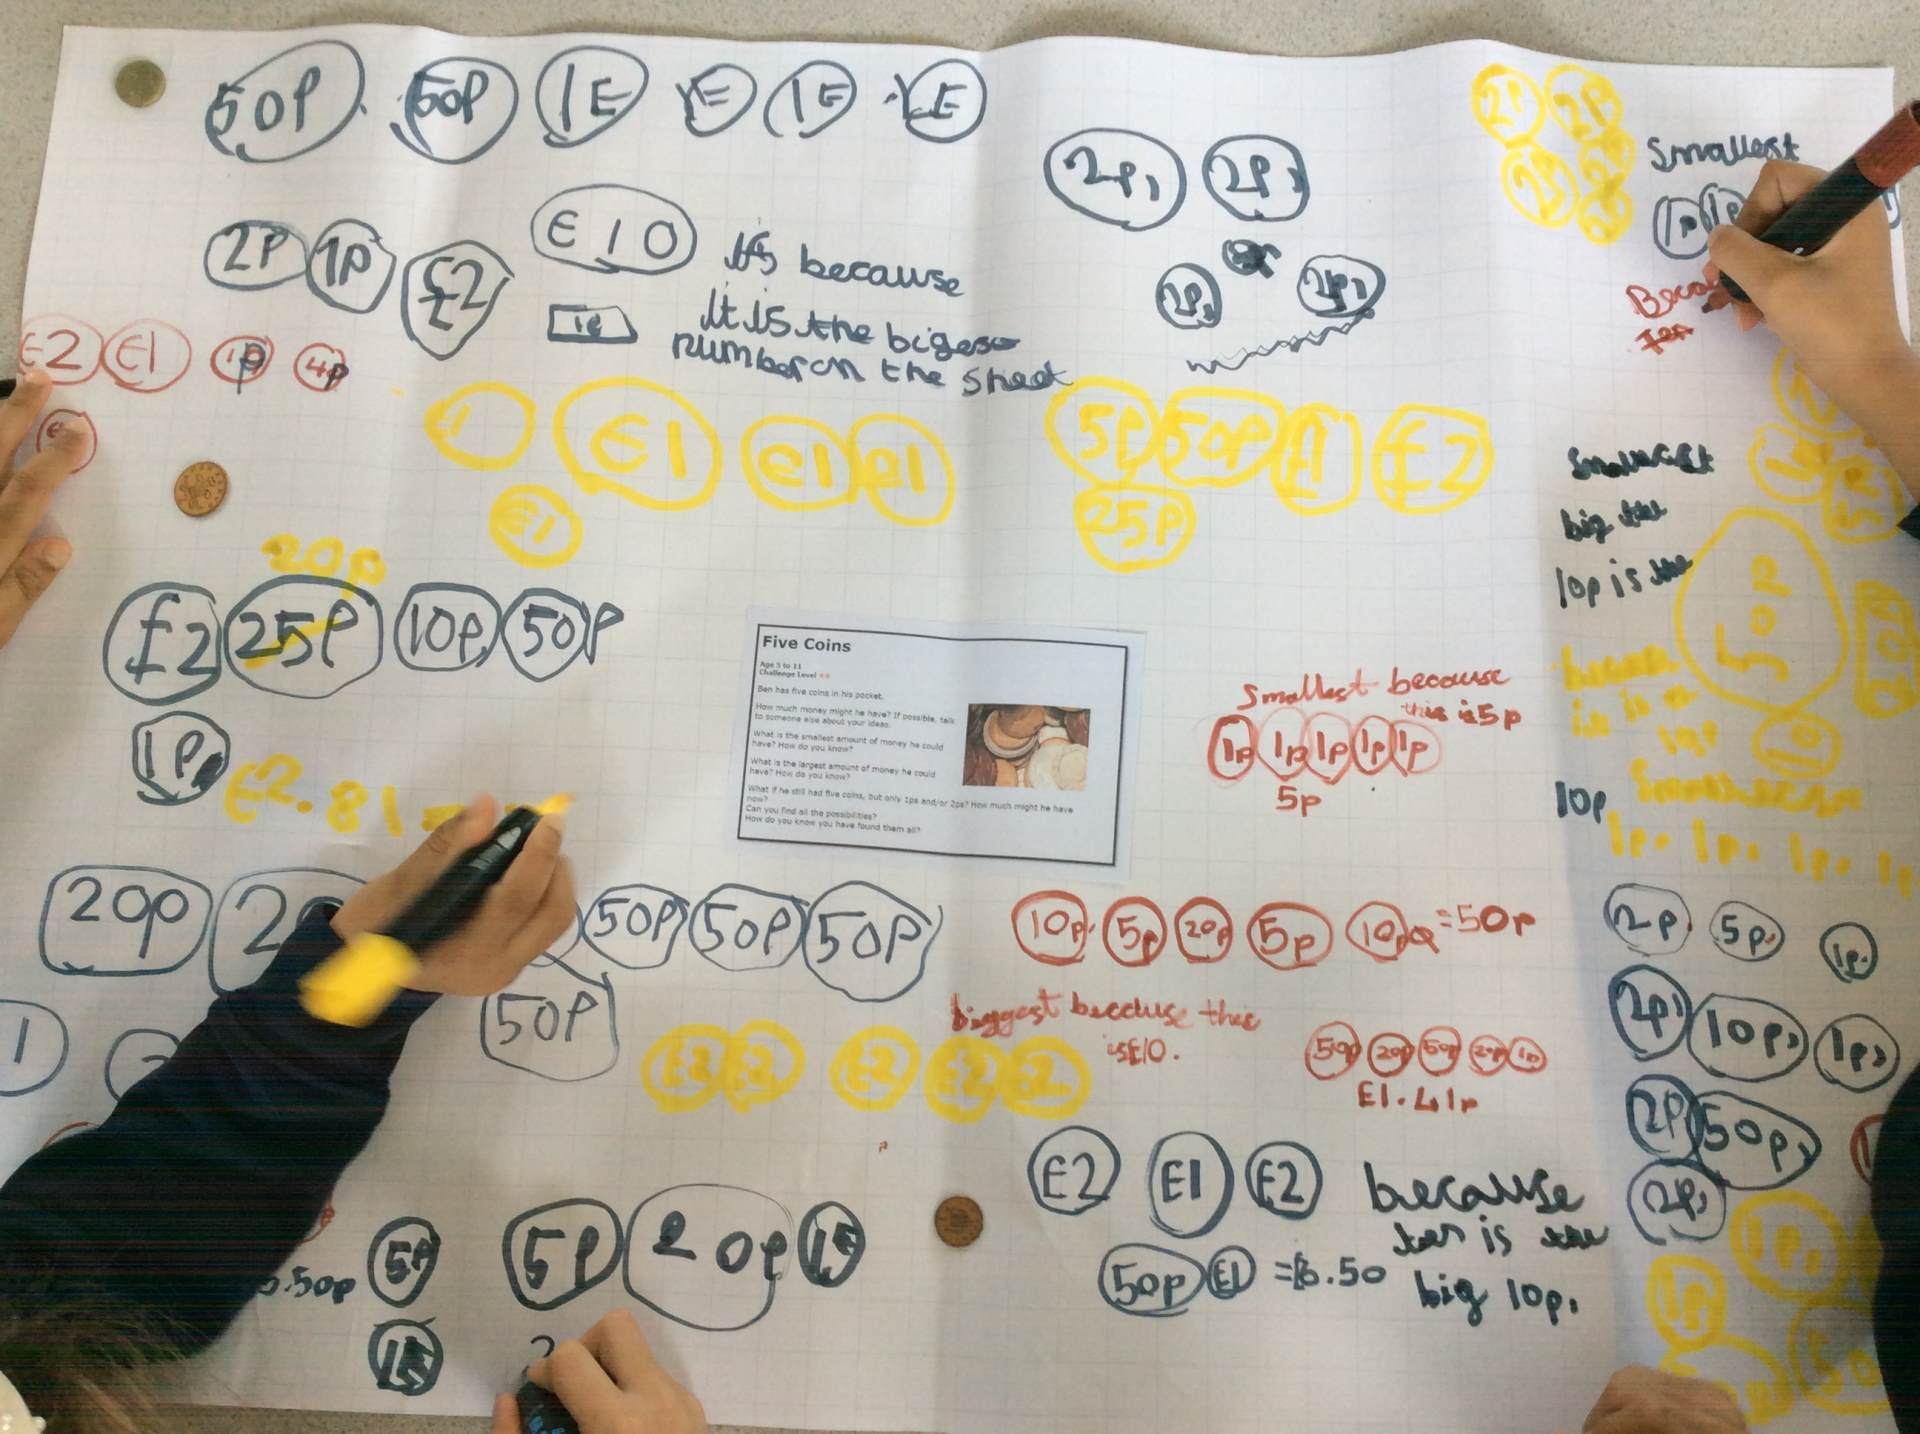 50p 50p 1£ 1£ 1£ 1£
2p 1p £2
£10
its because
it is the bigest
number on the sheet
2p, 2p,
2p, 2p,
2p 2p
Smallest
1p 1p
£2 £1 1p
£1 £1 £1
£1
5p 50p £1 £2
25p
20p
£2 25p 10p 50p
1p
£2.81
big the
10p is the
50p
10
10p
1p. 1p. 1p. 1p
Five Coins
Age 5 to 11
Challenge Level
Ben has five coins in his pocket.
How much money might he have? If possible, talk
to someone else about your ideas.
What is the smallest amount of money he could
have? How do you know?
What is the largest amount of money he could
have? How do you know?
What if he still had five coins, but only 1ps and/or 2ps? How much might he have
now?
Can you find all the possibilities?
How do you know you have found them all?
Smallest because
this is 5p
1p 1p 1p 1p 1p
5p
20p 50p 50p 50p
50p
10p. 5p 20p 5p 10p =50p
biggest because this
is£10.
£2 £2 £2 £2 £2
50p 20p 50p 20p 1p
£1.41p
2p. 5p. 1p.
2p, 10p, 1p,
2p, 50p,
2p,
1p,
1p
£2 £1 £2
50p £1 =£6.50
because
is the
big 10p.
.50p
5p
5p 20p 1£
1£
2
1